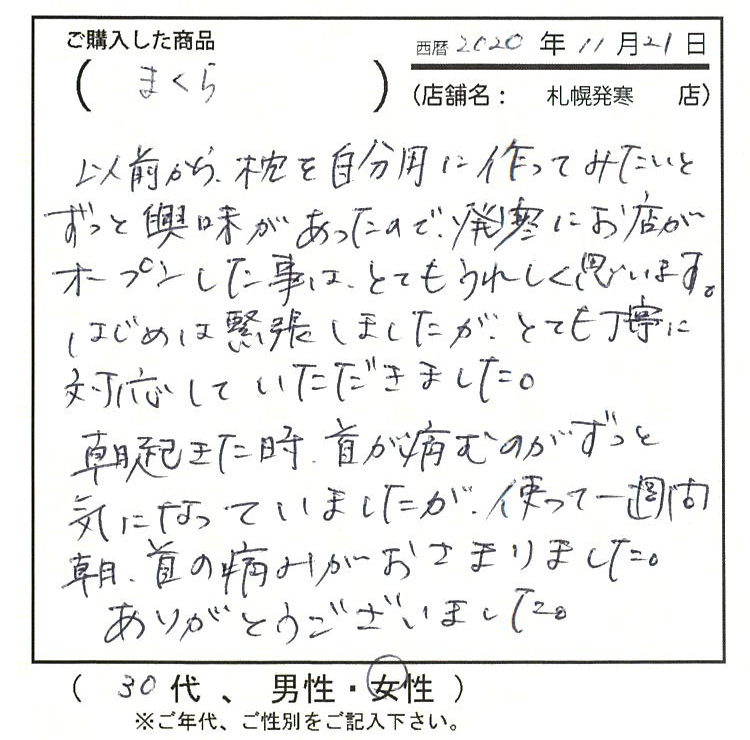 ご購入した商品
西暦 2020 年 11 月 21 日
( まくら )
(店舗名： 札幌発寒 店)
以前から、枕を自分用に作ってみたいと
ずっと興味があったので、発寒にお店が
オープンした事は、とてもうれしく思います。
はじめは緊張しましたが、とても丁寧に
対応していただきました。
朝起きた時、首が痛むのがずっと
気になっていましたが、使って一週間
朝、首の痛みがおさまりました。
ありがとうございました。
( 30 代 、 男性・女性 )
※ご年代、ご性別をご記入下さい。